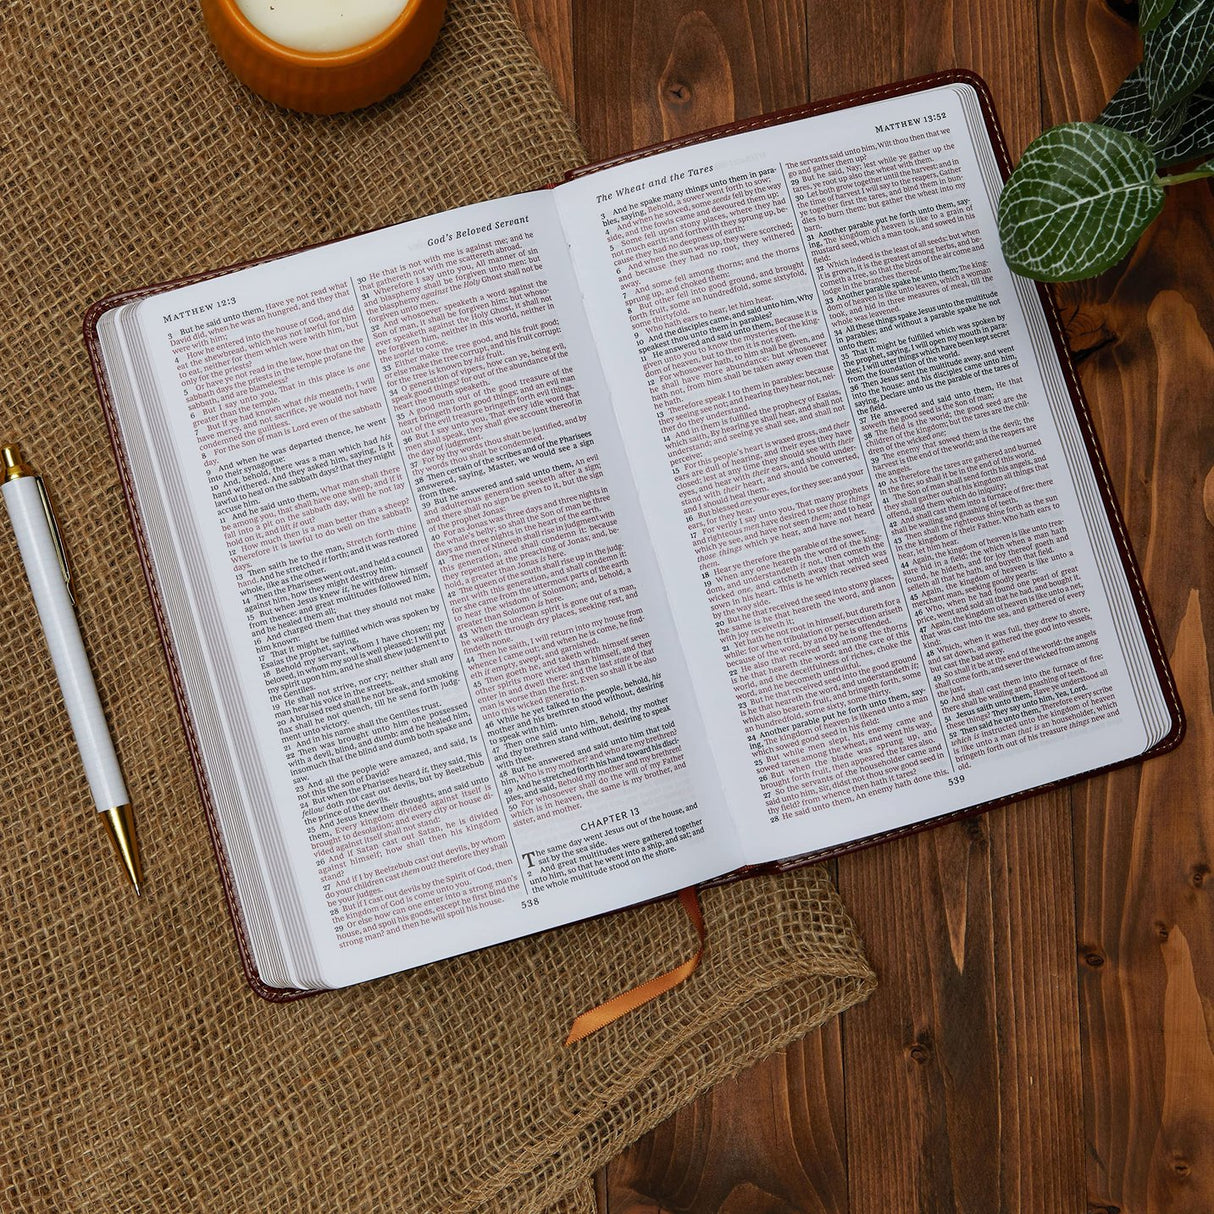 MATTHEW 12:3
God's Beloved Servant
3 But he said unto them, Have ye not read what
David did, when he was an hungred, and they that
were with him;
4 How he entered into the house of God, and did
eat the shewbread, which was not lawful for him to
eat, neither for them which were with him, but
only for the priests?
5 Or have ye not read in the law, how that on the
sabbath days the priests in the temple profane the
sabbath, and are blameless?
6 But I say unto you, That in this place is one
greater than the temple.
7 But if ye had known what this meaneth, I will
have mercy, and not sacrifice, ye would not have
condemned the guiltless.
8 For the Son of man is Lord even of the sabbath
day.
9 And when he was departed thence, he went
into their synagogue:
10 And, behold, there was a man which had his
hand withered. And they asked him, saying, Is it
lawful to heal on the sabbath days? that they might
accuse him.
11 And he said unto them, What man shall there
be among you, that shall have one sheep, and if it
fall into a pit on the sabbath day, will he not lay
hold on it, and lift it out?
12 How much then is a man better than a sheep?
Wherefore it is lawful to do well on the sabbath
days.
13 Then saith he to the man, Stretch forth thine
hand. And he stretched it forth; and it was restored
whole, like as the other.
14 Then the Pharisees went out, and held a council
against him, how they might destroy him.
15 But when Jesus knew it, he withdrew himself
from thence: and great multitudes followed him,
and he healed them all;
16 And charged them that they should not make
him known:
17 That it might be fulfilled which was spoken by
Esaias the prophet, saying,
18 Behold my servant, whom I have chosen; my
beloved, in whom my soul is well pleased: I will put
my spirit upon him, and he shall shew judgment to
the Gentiles.
19 He shall not strive, nor cry; neither shall any
man hear his voice in the streets.
20 A bruised reed shall he not break, and smoking
flax shall he not quench, till he send forth judg-
ment unto victory.
21 And in his name shall the Gentiles trust.
22 Then was brought unto him one possessed
with a devil, blind, and dumb: and he healed him,
insomuch that the blind and dumb both spake and
saw.
23 And all the people were amazed, and said, Is
not this the son of David?
24 But when the Pharisees heard it, they said, This
fellow doth not cast out devils, but by Beelzebub
the prince of the devils.
25 And Jesus knew their thoughts, and said unto
them, Every kingdom divided against itself is
brought to desolation; and every city or house di-
vided against itself shall not stand:
26 And if Satan cast out Satan, he is divided
against himself; how shall then his kingdom
stand?
27 And if I by Beelzebub cast out devils, by whom
do your children cast them out? therefore they shall
be your judges.
28 But if I cast out devils by the Spirit of God, then
the kingdom of God is come unto you.
29 Or else how can one enter into a strong man's
house, and spoil his goods, except he first bind the
strong man? and then he will spoil his house.
30 He that is not with me is against me; and he
that gathereth not with me scattereth abroad.
31 Wherefore I say unto you, All manner of sin
and blasphemy shall be forgiven unto men: but
the blasphemy against the Holy Ghost shall not be
forgiven unto men.
32 And whosoever speaketh a word against the
Son of man, it shall be forgiven him: but whoso-
ever speaketh against the Holy Ghost, it shall not
be forgiven him, neither in this world, neither in
the world to come.
33 Either make the tree good, and his fruit good;
or else make the tree corrupt, and his fruit corrupt:
for the tree is known by his fruit.
34 O generation of vipers, how can ye, being evil,
speak good things? for out of the abundance of the
heart the mouth speaketh.
35 A good man out of the good treasure of the
heart bringeth forth good things: and an evil man
out of the evil treasure bringeth forth evil things.
36 But I say unto you, That every idle word that
men shall speak, they shall give account thereof in
the day of judgment.
37 For by thy words thou shalt be justified, and by
thy words thou shalt be condemned.
38 Then certain of the scribes and of the Pharisees
answered, saying, Master, we would see a sign
from thee.
39 But he answered and said unto them, An evil
and adulterous generation seeketh after a sign;
and there shall no sign be given to it, but the sign
of the prophet Jonas:
40 For as Jonas was three days and three nights
in the whale's belly; so shall the Son of man be three
days and three nights in the heart of the earth.
41 The men of Nineveh shall rise in judgment with
this generation, and shall condemn it: because
they repented at the preaching of Jonas; and, be-
hold, a greater than Jonas is here.
42 The queen of the south shall rise up in the judg-
ment with this generation, and shall condemn it:
for she came from the uttermost parts of the earth
to hear the wisdom of Solomon; and, behold, a
greater than Solomon is here.
43 When the unclean spirit is gone out of a man,
he walketh through dry places, seeking rest, and
findeth none.
44 Then he saith, I will return into my house from
whence I came out; and when he is come, he find-
eth it empty, swept, and garnished.
45 Then goeth he, and taketh with himself seven
other spirits more wicked than himself, and they
enter in and dwell there: and the last state of that
man is worse than the first. Even so shall it be also
unto this wicked generation.
46 While he yet talked to the people, behold, his
mother and his brethren stood without, desiring
to speak with him.
47 Then one said unto him, Behold, thy mother
and thy brethren stand without, desiring to speak
with thee.
48 But he answered and said unto him that told
him, Who is my mother? and who are my brethren?
49 And he stretched forth his hand toward his disci-
ples, and said, Behold my mother and my brethren!
50 For whosoever shall do the will of my Father
which is in heaven, the same is my brother, and
sister, and mother.
CHAPTER 13
The same day went Jesus out of the house, and
sat by the sea side.
2 And great multitudes were gathered together
unto him, so that he went into a ship, and sat; and
the whole multitude stood on the shore.
538
The Wheat and the Tares
MATTHEW 13:52
3 And he spake many things unto them in para-
bles, saying, Behold, a sower went forth to sow;
4 And when he sowed, some seeds fell by the way
side, and the fowls came and devoured them up:
5 Some fell upon stony places, where they had
not much earth: and forthwith they sprung up, be-
cause they had no deepness of earth:
6 And when the sun was up, they were scorched;
and because they had no root, they withered
away.
7 And some fell among thorns; and the thorns
sprung up, and choked them:
8 But other fell into good ground, and brought
forth fruit, some an hundredfold, some sixtyfold,
some thirtyfold.
9 Who hath ears to hear, let him hear.
10 And the disciples came, and said unto him, Why
speakest thou unto them in parables?
11 He answered and said unto them, Because it is
given unto you to know the mysteries of the king-
dom of heaven, but to them it is not given.
12 For whosoever hath, to him shall be given, and
he shall have more abundance: but whosoever
hath not, from him shall be taken away even that
he hath.
13 Therefore speak I to them in parables: because
they seeing see not; and hearing they hear not, nei-
ther do they understand.
14 And in them is fulfilled the prophecy of Esaias,
which saith, By hearing ye shall hear, and shall not
understand; and seeing ye shall see, and shall not
perceive:
15 For this people's heart is waxed gross, and their
ears are dull of hearing, and their eyes they have
closed; lest at any time they should see with their
eyes, and hear with their ears, and should under-
stand with their heart, and should be converted,
and I should heal them.
16 But blessed are your eyes, for they see: and your
ears, for they hear.
17 For verily I say unto you, That many prophets
and righteous men have desired to see those things
which ye see, and have not seen them; and to hear
those things which ye hear, and have not heard
them.
18 Hear ye therefore the parable of the sower.
19 When any one heareth the word of the king-
dom, and understandeth it not, then cometh the
wicked one, and catcheth away that which was
sown in his heart. This is he which received seed
by the way side.
20 But he that received the seed into stony places,
the same is he that heareth the word, and anon
with joy receiveth it;
21 Yet hath he not root in himself, but dureth for a
while: for when tribulation or persecution ariseth
because of the word, by and by he is offended.
22 He also that received seed among the thorns
is he that heareth the word; and the care of this
world, and the deceitfulness of riches, choke the
word, and he becometh unfruitful.
23 But he that received seed into the good ground
is he that heareth the word, and understandeth it;
which also beareth fruit, and bringeth forth, some
an hundredfold, some sixty, some thirty.
24 Another parable put he forth unto them, say-
ing, The kingdom of heaven is likened unto a man
which sowed good seed in his field:
25 But while men slept, his enemy came and
sowed tares among the wheat, and went his way.
26 But when the blade was sprung up, and
brought forth fruit, then appeared the tares also.
27 So the servants of the householder came and
said unto him, Sir, didst not thou sow good seed in
thy field? from whence then hath it tares?
28 He said unto them, An enemy hath done this.
The servants said unto him, Wilt thou then that we
go and gather them up?
29 But he said, Nay; lest while ye gather up the
tares, ye root up also the wheat with them.
30 Let both grow together until the harvest: and in
the time of harvest I will say to the reapers, Gather
ye together first the tares, and bind them in bun-
dles to burn them: but gather the wheat into my
barn.
31 Another parable put he forth unto them, say-
ing, The kingdom of heaven is like to a grain of
mustard seed, which a man took, and sowed in his
field:
32 Which indeed is the least of all seeds: but when
it is grown, it is the greatest among herbs, and be-
cometh a tree, so that the birds of the air come and
lodge in the branches thereof.
33 Another parable spake he unto them; The king-
dom of heaven is like unto leaven, which a woman
took, and hid in three measures of meal, till the
whole was leavened.
34 All these things spake Jesus unto the multitude
in parables; and without a parable spake he not
unto them:
35 That it might be fulfilled which was spoken by
the prophet, saying, I will open my mouth in para-
bles; I will utter things which have been kept secret
from the foundation of the world.
36 Then Jesus sent the multitude away, and went
into the house: and his disciples came unto him,
saying, Declare unto us the parable of the tares of
the field.
37 He answered and said unto them, He that
soweth the good seed is the Son of man;
38 The field is the world; the good seed are the
children of the kingdom; but the tares are the chil-
dren of the wicked one;
39 The enemy that sowed them is the devil; the
harvest is the end of the world; and the reapers are
the angels.
40 As therefore the tares are gathered and burned
in the fire; so shall it be in the end of this world.
41 The Son of man shall send forth his angels, and
they shall gather out of his kingdom all things that
offend, and them which do iniquity;
42 And shall cast them into a furnace of fire: there
shall be wailing and gnashing of teeth.
43 Then shall the righteous shine forth as the sun
in the kingdom of their Father. Who hath ears to
hear, let him hear.
44 Again, the kingdom of heaven is like unto trea-
sure hid in a field; the which when a man hath
found, he hideth, and for joy thereof goeth and
selleth all that he hath, and buyeth that field.
45 Again, the kingdom of heaven is like unto a
merchant man, seeking goodly pearls:
46 Who, when he had found one pearl of great
price, went and sold all that he had, and bought it.
47 Again, the kingdom of heaven is like unto a net,
that was cast into the sea, and gathered of every
kind:
48 Which, when it was full, they drew to shore,
and sat down, and gathered the good into vessels,
but cast the bad away.
49 So shall it be at the end of the world: the angels
shall come forth, and sever the wicked from among
the just,
50 And shall cast them into the furnace of fire:
there shall be wailing and gnashing of teeth.
51 Jesus saith unto them, Have ye understood all
these things? They say unto him, Yea, Lord.
52 Then said he unto them, Therefore every scribe
which is instructed unto the kingdom of heaven
is like unto a man that is an householder, which
bringeth forth out of his treasure things new and
old.
539